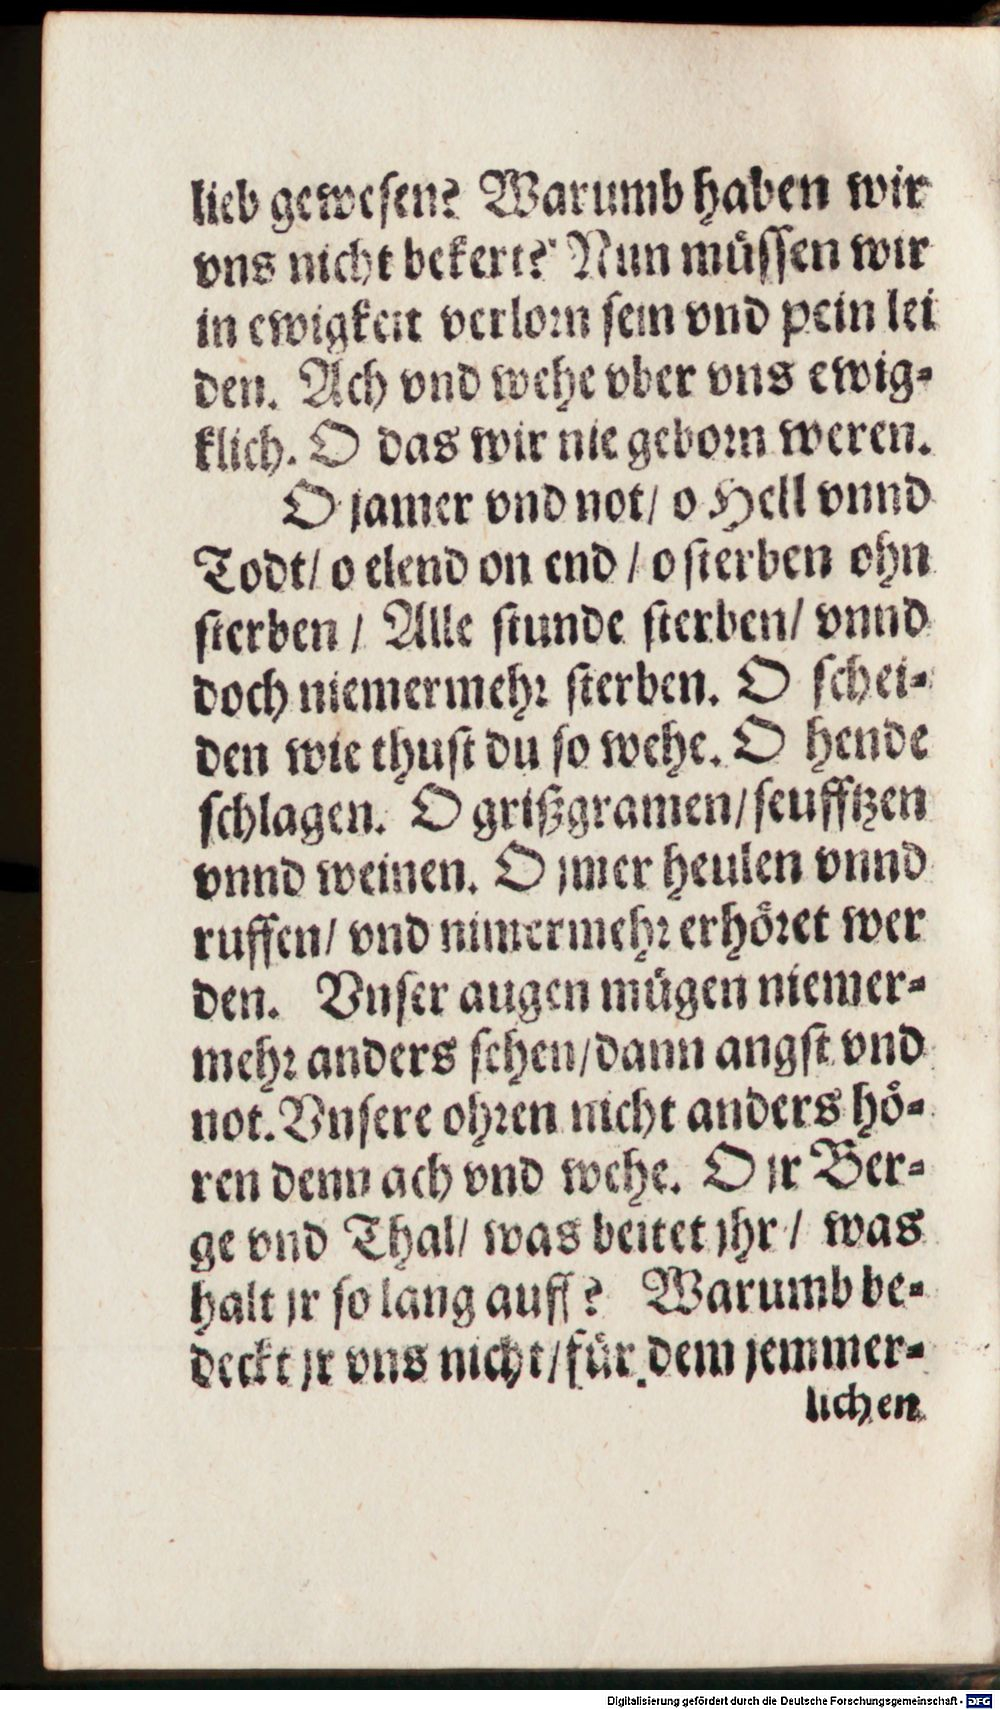 lieb gewesen? Warumb haben wir
vns nicht bekert? Nun müssen wir
in ewigkeit verlorn sein vnd pein lei
den. Ach vnd wehe vber vns ewig-
klich. O das wir nie geborn weren.
O jamer vnd not/ o Hell vnnd
Todt/ o elend on end / o sterben ohn
sterben / Alle stunde sterben/ vnnd
doch niemermehr sterben. O schei-
den wie thust du so wehe. O hende
schlagen. O grißgramen/ seufftzen
vnnd weinen. O jmer heulen vnnd
ruffen/ vnd nimermehr erhöret wer
den. Vnser augen mügen niemer-
mehr anders sehen/ dann angst vnd
not. Vnsere ohren nicht anders hö-
ren denn ach vnd wehe. O jr Ber-
ge vnd Thal/ was beitet jhr / was
halt jr so lang auff? Warumb be-
deckt jr vns nicht/ für dem jemmer-
lichen
Digitalisierung gefördert durch die Deutsche Forschungsgemeinschaft - DFG